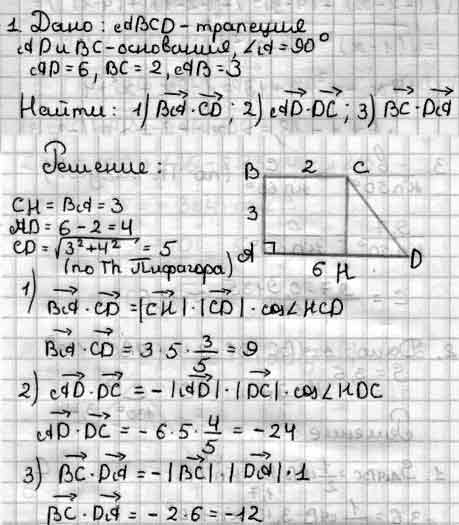 1. Дано: ABCD - трапеция
AD и BC - основания, ∠A = 90°
AD = 6, BC = 2, AB = 3
Найти: 1) BA · CD; 2) AD · DC; 3) BC · DA
Решение:
CH = BA = 3
HD = 6 - 2 = 4
CD = √3² + 4² = 5
(по Th Пифагора)
B 2 C
3
A 6 H D
1) BA · CD = |CH| · |CD| · cos∠HCD
BA · CD = 3 · 5 · 3/5 = 9
2) AD · DC = - |AD| · |DC| · cos∠HDC
AD · DC = - 6 · 5 · 4/5 = -24
3) BC · DA = - |BC| · |DA| · 1
BC · DA = - 2 · 6 = -12